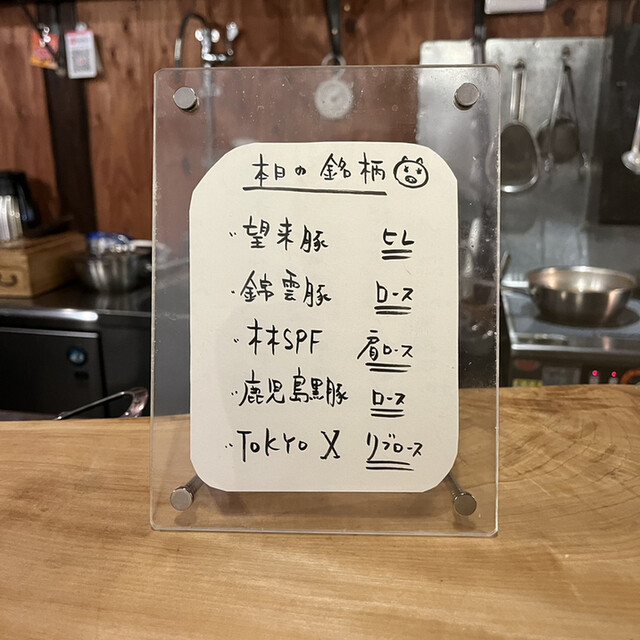 本日の銘柄
望来豚 ヒレ
錦雲豚 ロース
林SPF 肩ロース
鹿児島黒豚 ロース
TOKYO X リブロース